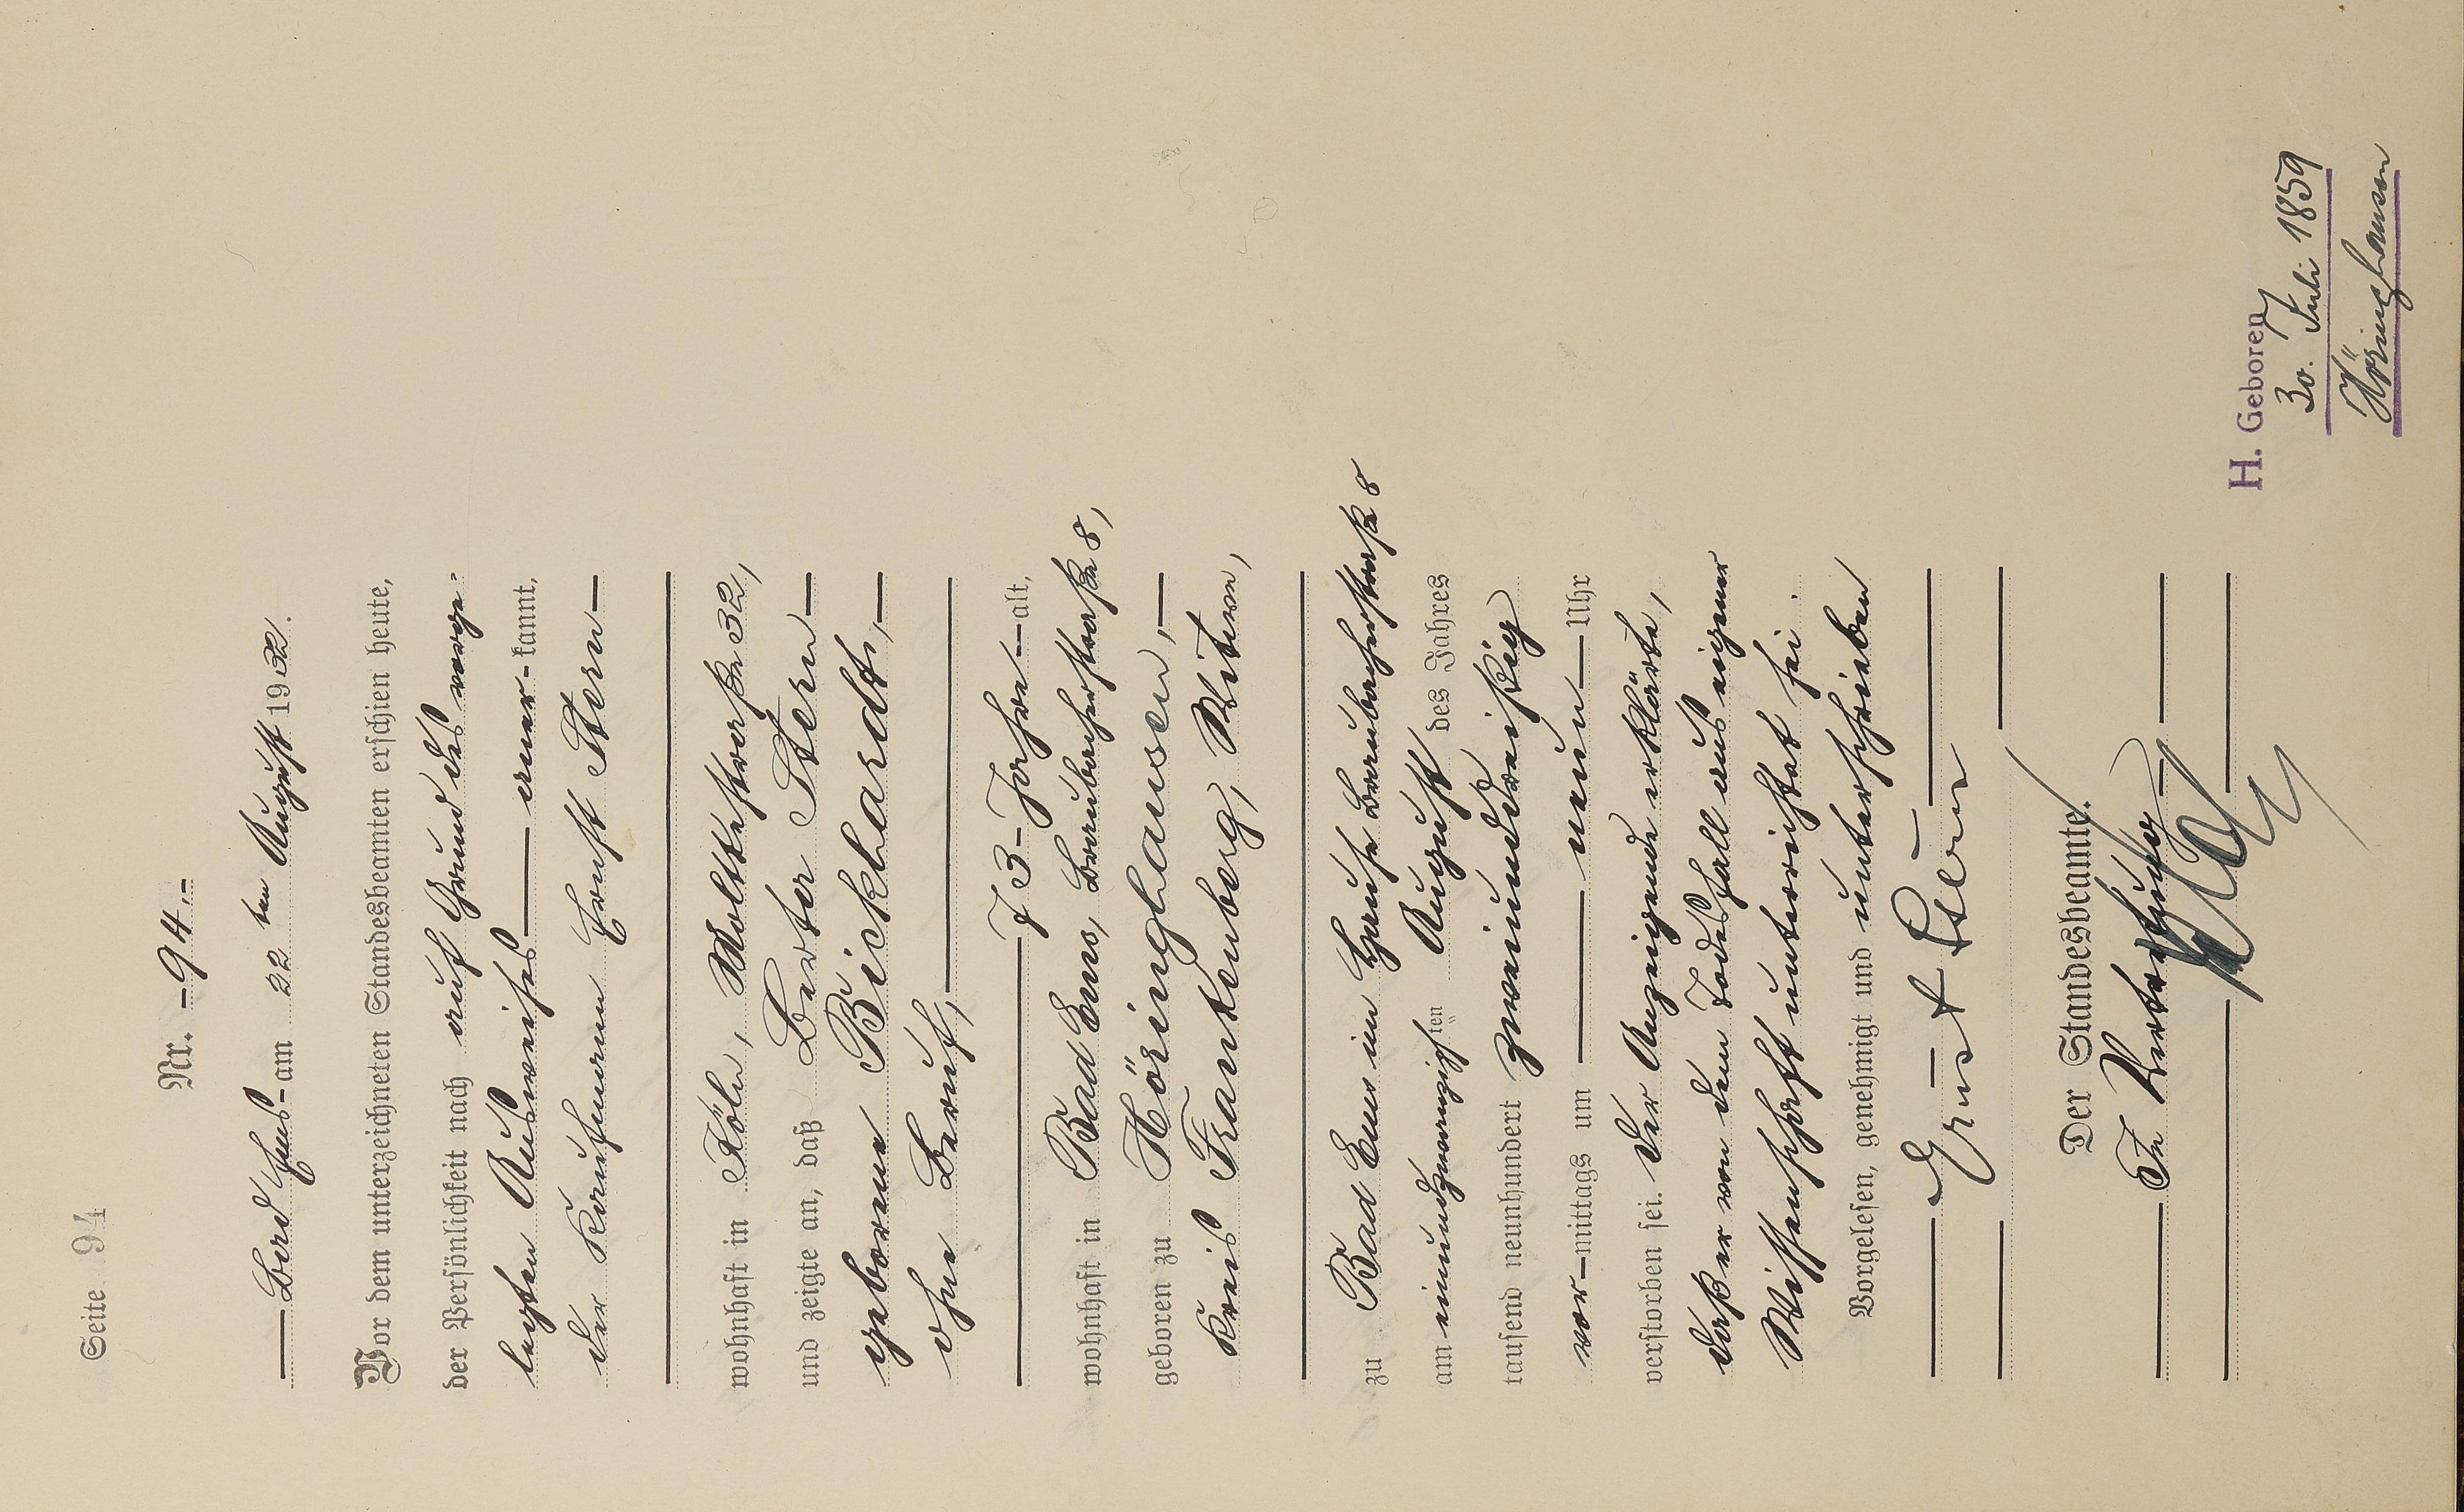 Seite 94
Nr. – 94.–
Bad Ems – am 22 ten August 1932.
Vor dem unterzeichneten Standesbeamten erschien heute,
der Persönlichkeit nach auf Grund des vorge=
legten Ausweises – aner – kannt,
der Kaufmann Ernst Stern –
wohnhaft in Köln, Moltkestraße 32,
und zeigte an, daß Berta Stern –
geborene Bickhardt, –
ohne Beruf, –
73 – Jahre – alt,
wohnhaft in Bad Ems, Braubacherstraße 8,
geboren zu Höringhausen, –
Kreis Frankenberg, Witwe,
zu Bad Ems im Hause Braubacherstraße 8
am einundzwanzigsten August des Jahres
tausend neunhundert zweiunddreißig
vor – mittags um – neun – Uhr
verstorben sei. Der Anzeigende erklärte,
daß er von dem Todesfall aus eigener
Wissenschaft unterrichtet sei.
Vorgelesen, genehmigt und unterschrieben
– Ernst Stern –
Der Standesbeamte.
In Vertretung
H. Geboren
30. Juli 1859
Höringhausen